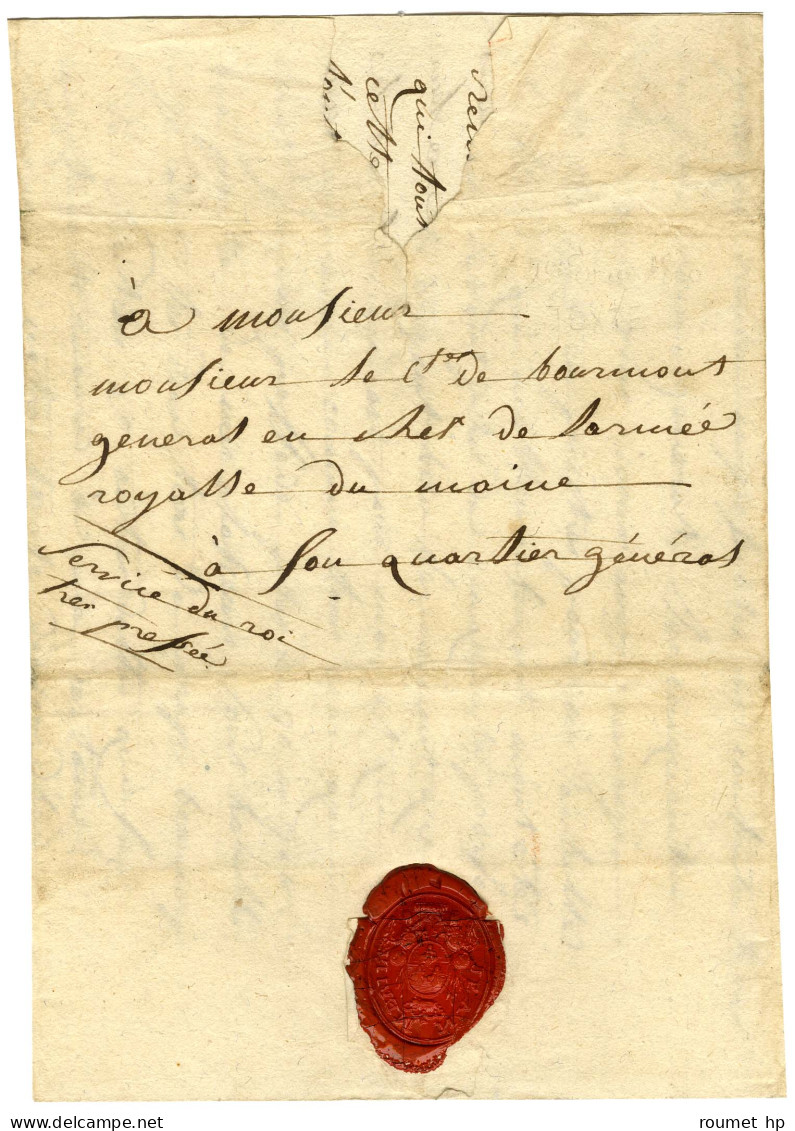 qui tous
cette
à monsieur
monsieur le Cte de bourmont
general en chef de larmée
royalle du maine
à son quartier général
service du roi
tres pressée
roumet hp